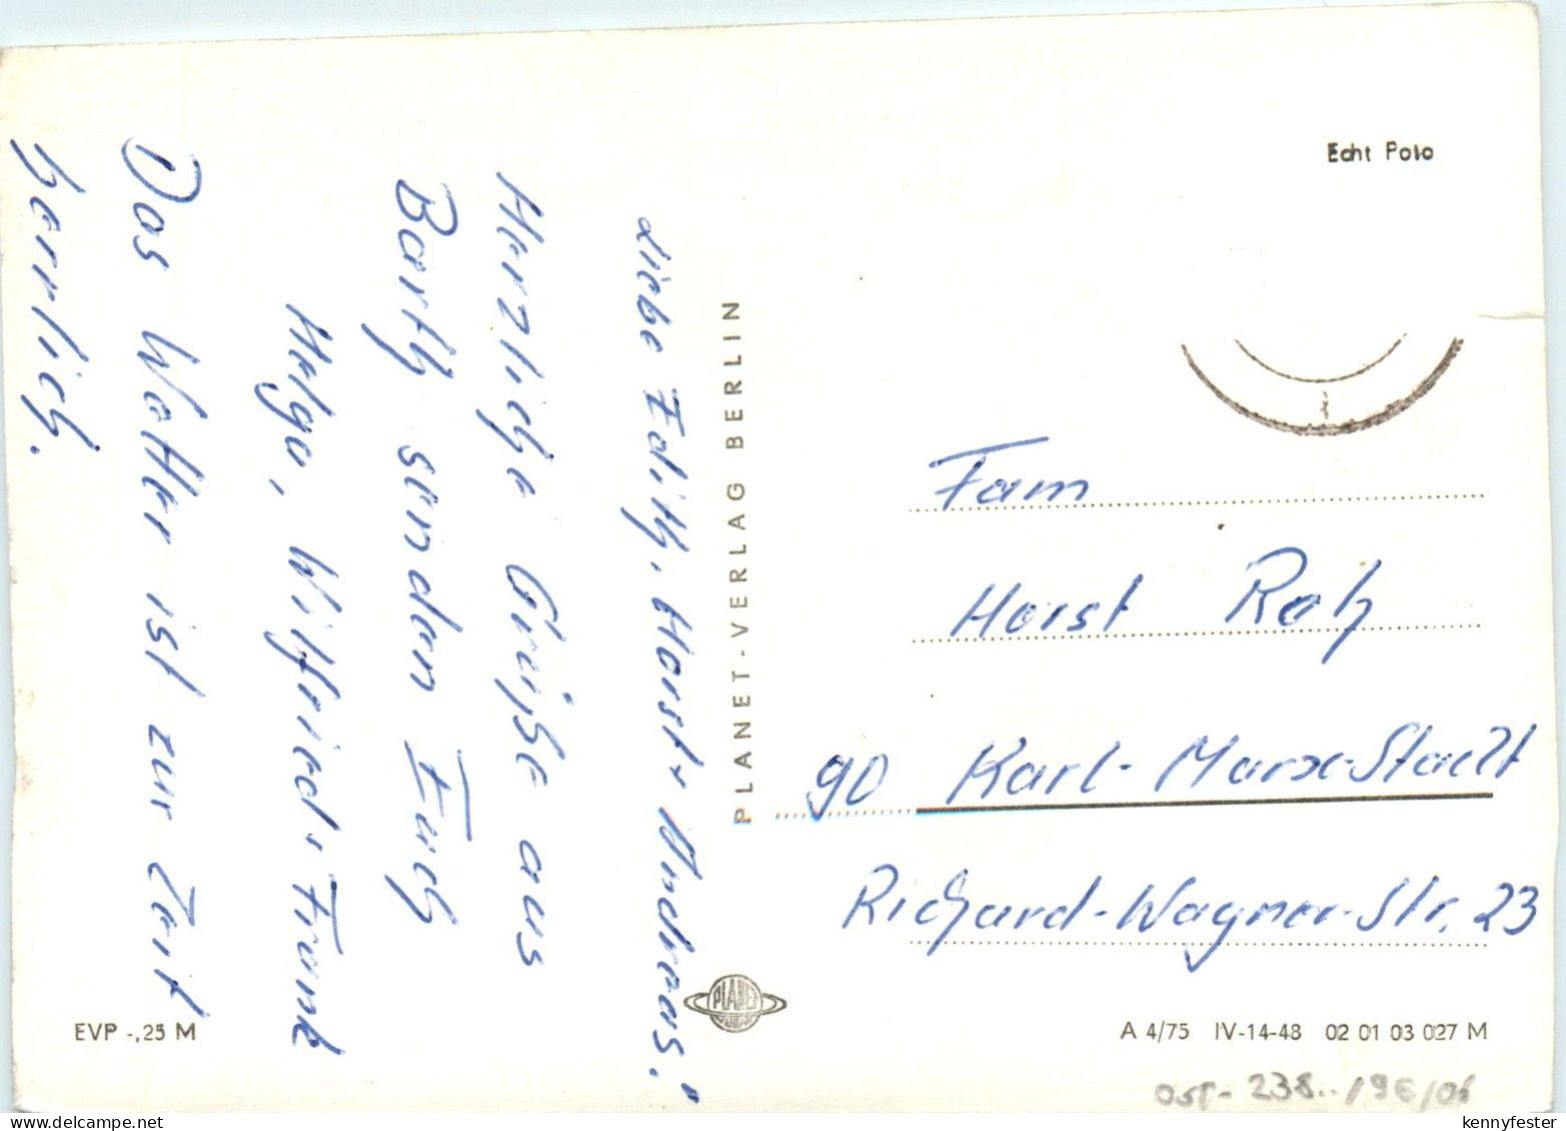 Liebe Edith, Horst + Andreas!
Herzliche Grüße aus
Barth senden Euch
Helga, Wilfried + Frank
Das Wetter ist zur Zeit
herrlich.
EVP -,25 M
PLANET-VERLAG BERLIN
PLANET
Echt Foto
Fam
Horst
90 Karl-Marx-Stadt
Richard-Wagner-Str. 23
A 4/75 IV-14-48 02 01 03 027 M
kennyfester